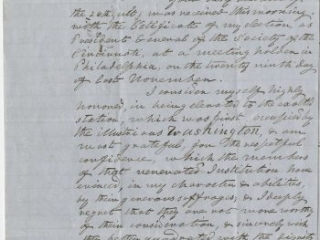 the 20th ult, was received this morning,
with the Certificate of my election as
President General of the Society of the
Cincinnati, at a meeting holden in
Philadelphia, on the twenty ninth day
of last November.
I consider myself highly
honored, in being elevated to the exalted
station, which was first occupied by
the illustrious Washington, & am
most grateful, for the respectful
confidence, which the members
of that venerated Institution have
evinced, in my character & abilities,
by their generous suffrages, & I deeply
regret that they are not more worthy
of their consideration, & sincerely wish